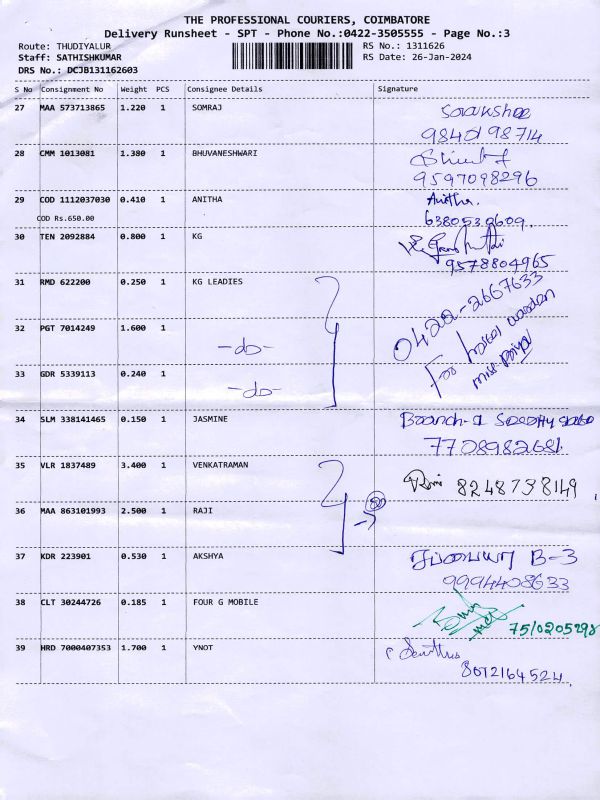 THE PROFESSIONAL COURIERS, COIMBATORE
Delivery Runsheet - SPT - Phone No.:0422-3505555 - Page No.:3
Route: THUDIYALUR RS No.: 1311626
Staff: SATHISHKUMAR RS Date: 26-Jan-2024
DRS No.: DCJB131162603
S No Consignment No Weight PCS Consignee Details Signature
27 MAA 573713865 1.220 1 SOMRAJ
28 CMM 1013081 1.380 1 BHUVANESHWARI
9597098296
29 COD 1112037030 0.410 1 ANITHA Anitha.
COD Rs.650.00
30 TEN 2092884 0.800 1 KG
9578804965
31 RMD 622200 0.250 1 KG LEADIES
0422-2667633
32 PGT 7014249 1.600 1
-do-
For hostel warden
33 GDR 5339113 0.240 1
-do-
miss.priya
34 SLM 338141465 0.150 1 JASMINE Branch-1
7708982681.
35 VLR 1837489 3.400 1 VENKATRAMAN
8248738149
36 MAA 863101993 2.500 1 RAJI
37 KDR 223901 0.530 1 AKSHYA B-3
9994408633
38 CLT 30244726 0.185 1 FOUR G MOBILE
7510205298
39 HRD 7000407353 1.700 1 YNOT
8072164524